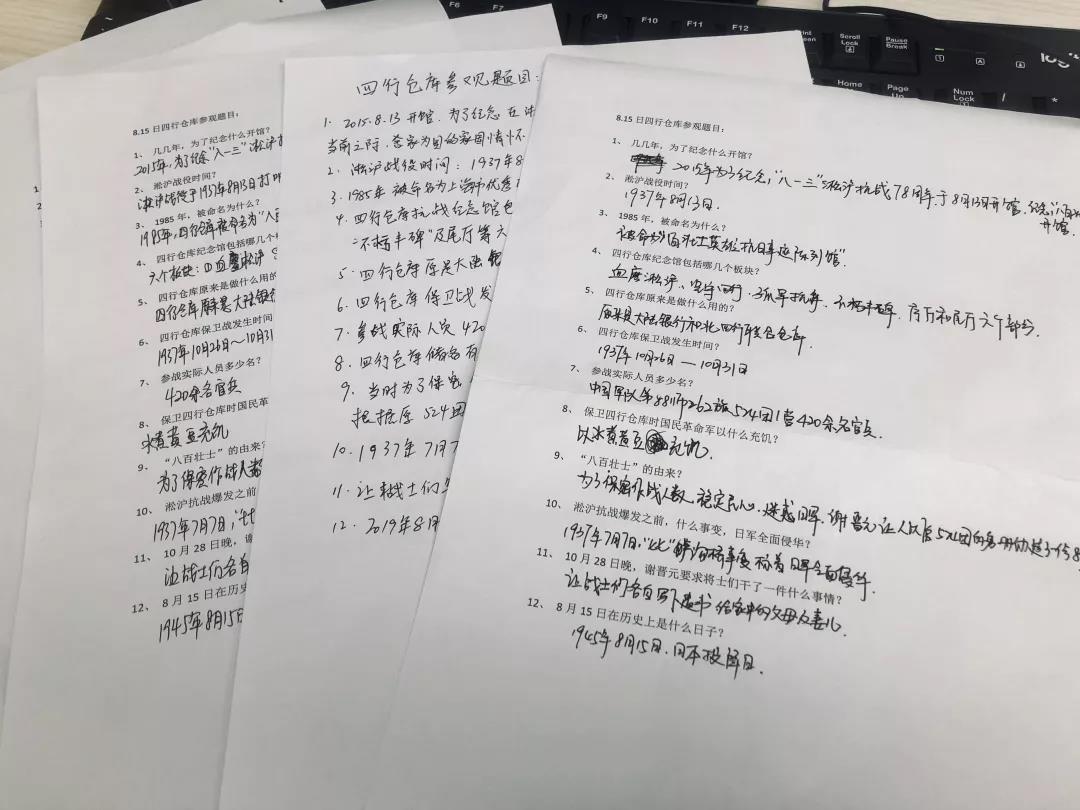 F6
F7
F9
F10
F11
F12
Scroll
Lock
Pause
Break
Home
Page
Up
Num
Lock
8.15 日四行仓库参观题目：
1、 几几年，为了纪念什么开馆？
2015年，为了纪念“八一三”淞沪
2、 淞沪战役时间？
淞沪战役于1937年8月13日打
3、 1985 年，被命名为什么？
1985年，四行仓库被命名为“八
4、 四行仓库纪念馆包括哪几个板
六个板块：血鏖淞沪
5、 四行仓库原来是做什么用的
四行仓库原来是大陆银行
6、 四行仓库保卫战发生时间
1937年10月26日～10月31
7、 参战实际人员多少名？
420余名官兵
8、 保卫四行仓库时国民革
水煮黄豆充饥
9、 “八百壮士”的由来？
为了保密作战人数
10、 淞沪抗战爆发之前
1937年7月7日，“七
11、 10 月 28 日晚，谢
让战士们各自
12、 8 月 15 日在历史
1945年8月15日
四行仓库参观题目：
1. 2015.8.13 开馆．为了纪念 在
当前之际，
2. 淞沪战役时间：1937年8
3. 1985年 被命名为上海市优秀
4. 四行仓库抗战纪念馆包
“不朽丰碑”及尾厅等六
5. 四行仓库原是大陆银
6. 四行仓库保卫战发
7. 参战实际人员 420
8. 四行仓库储备有
9. 当时为了保密
根据原 524团
10. 1937年 7月7
11. 让战士们
12. 2019年8月
8.15 日四行仓库参观题目：
1、 几几年，为了纪念什么开馆？
2015年为了纪念“八一三”淞沪抗战78周年．于8月13日开馆
开馆．
2、 淞沪战役时间？
1937年8月13日．
3、 1985 年，被命名为什么？
被命名为“八百壮士英雄抗日事迹陈列馆”．
4、 四行仓库纪念馆包括哪几个板块？
血鏖淞沪、坚守四行、孤军抗争、不朽丰碑、序厅和尾厅六个部分．
5、 四行仓库原来是做什么用的？
原来是大陆银行和北四行联合仓库．
6、 四行仓库保卫战发生时间？
1937年10月26日 — 10月31日
7、 参战实际人员多少名？
中国军队第88师262旅524团1营420余名官兵．
8、 保卫四行仓库时国民革命军以什么充饥？
以水煮黄豆充饥．
9、 “八百壮士”的由来？
为了保密作战人数、稳定民心、迷惑日军．谢晋元让人以原524团的名册伪造了一份8
10、 淞沪抗战爆发之前，什么事变，日军全面侵华？
1937年7月7日，“七七”卢沟桥事变标着日军全面侵华
11、 10 月 28 日晚，谢晋元要求将士们干了一件什么事情？
让战士们各自写下遗书给家中的父母及妻儿．
12、 8 月 15 日在历史上是什么日子？
1945年8月15日．日本投降日．